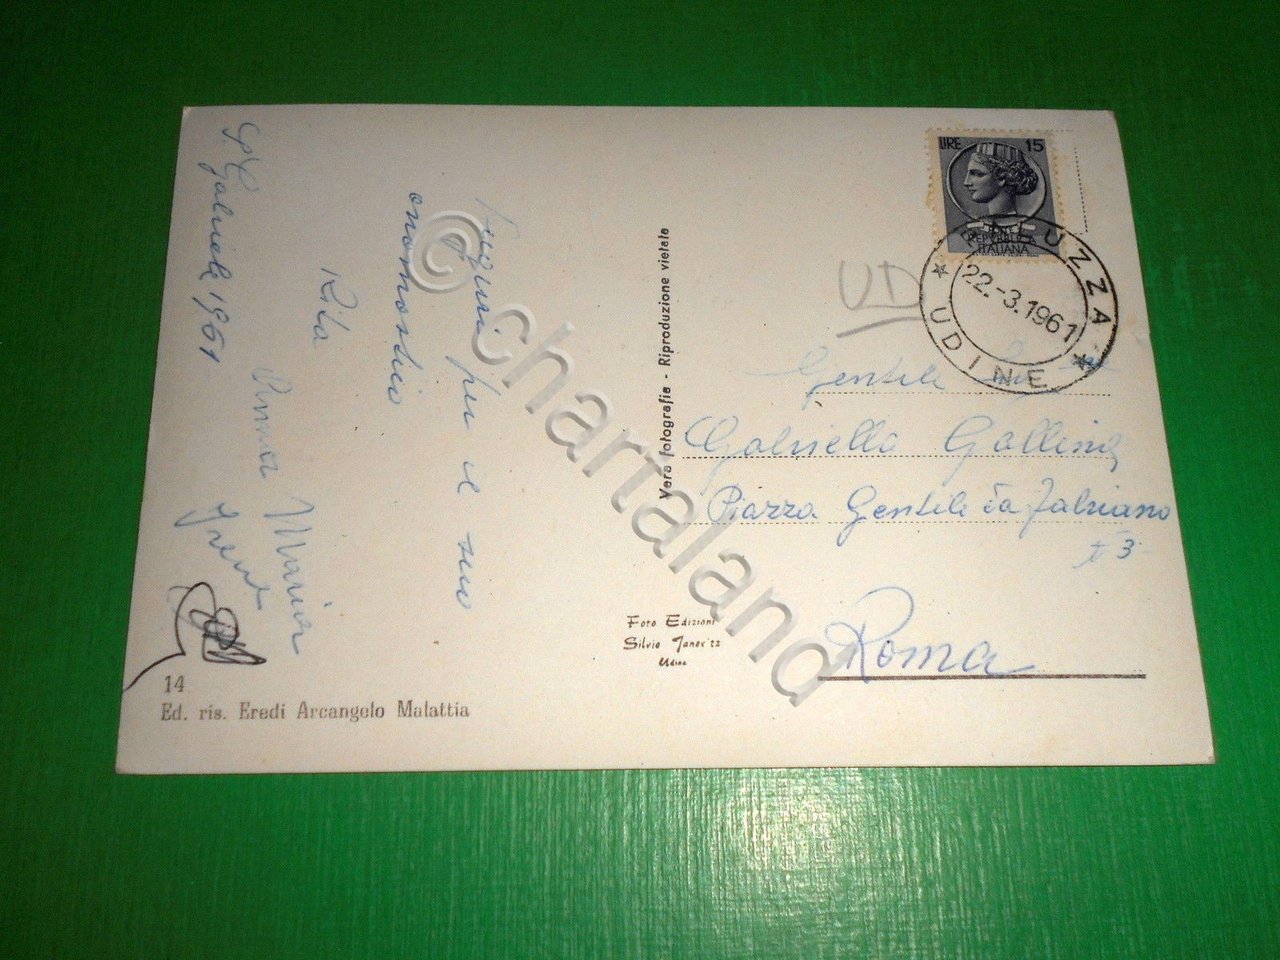 S. Gabriele 1961
Auguri per il suo
onomastico
Rita
Anna Maria
Irene
14
Ed. ris. Eredi Arcangelo Malattia
Vera fotografia - Riproduzione vietata
Foto Edizioni
Silvio Janovitz
Udine
LIRE 15
REPUBBLICA
ITALIANA
PALUZZA
22.-3.1961
* UDINE *
UD
Gentile
Gabriella Gallina
Piazza Gentile da Fabriano
3
Roma
© chartaland